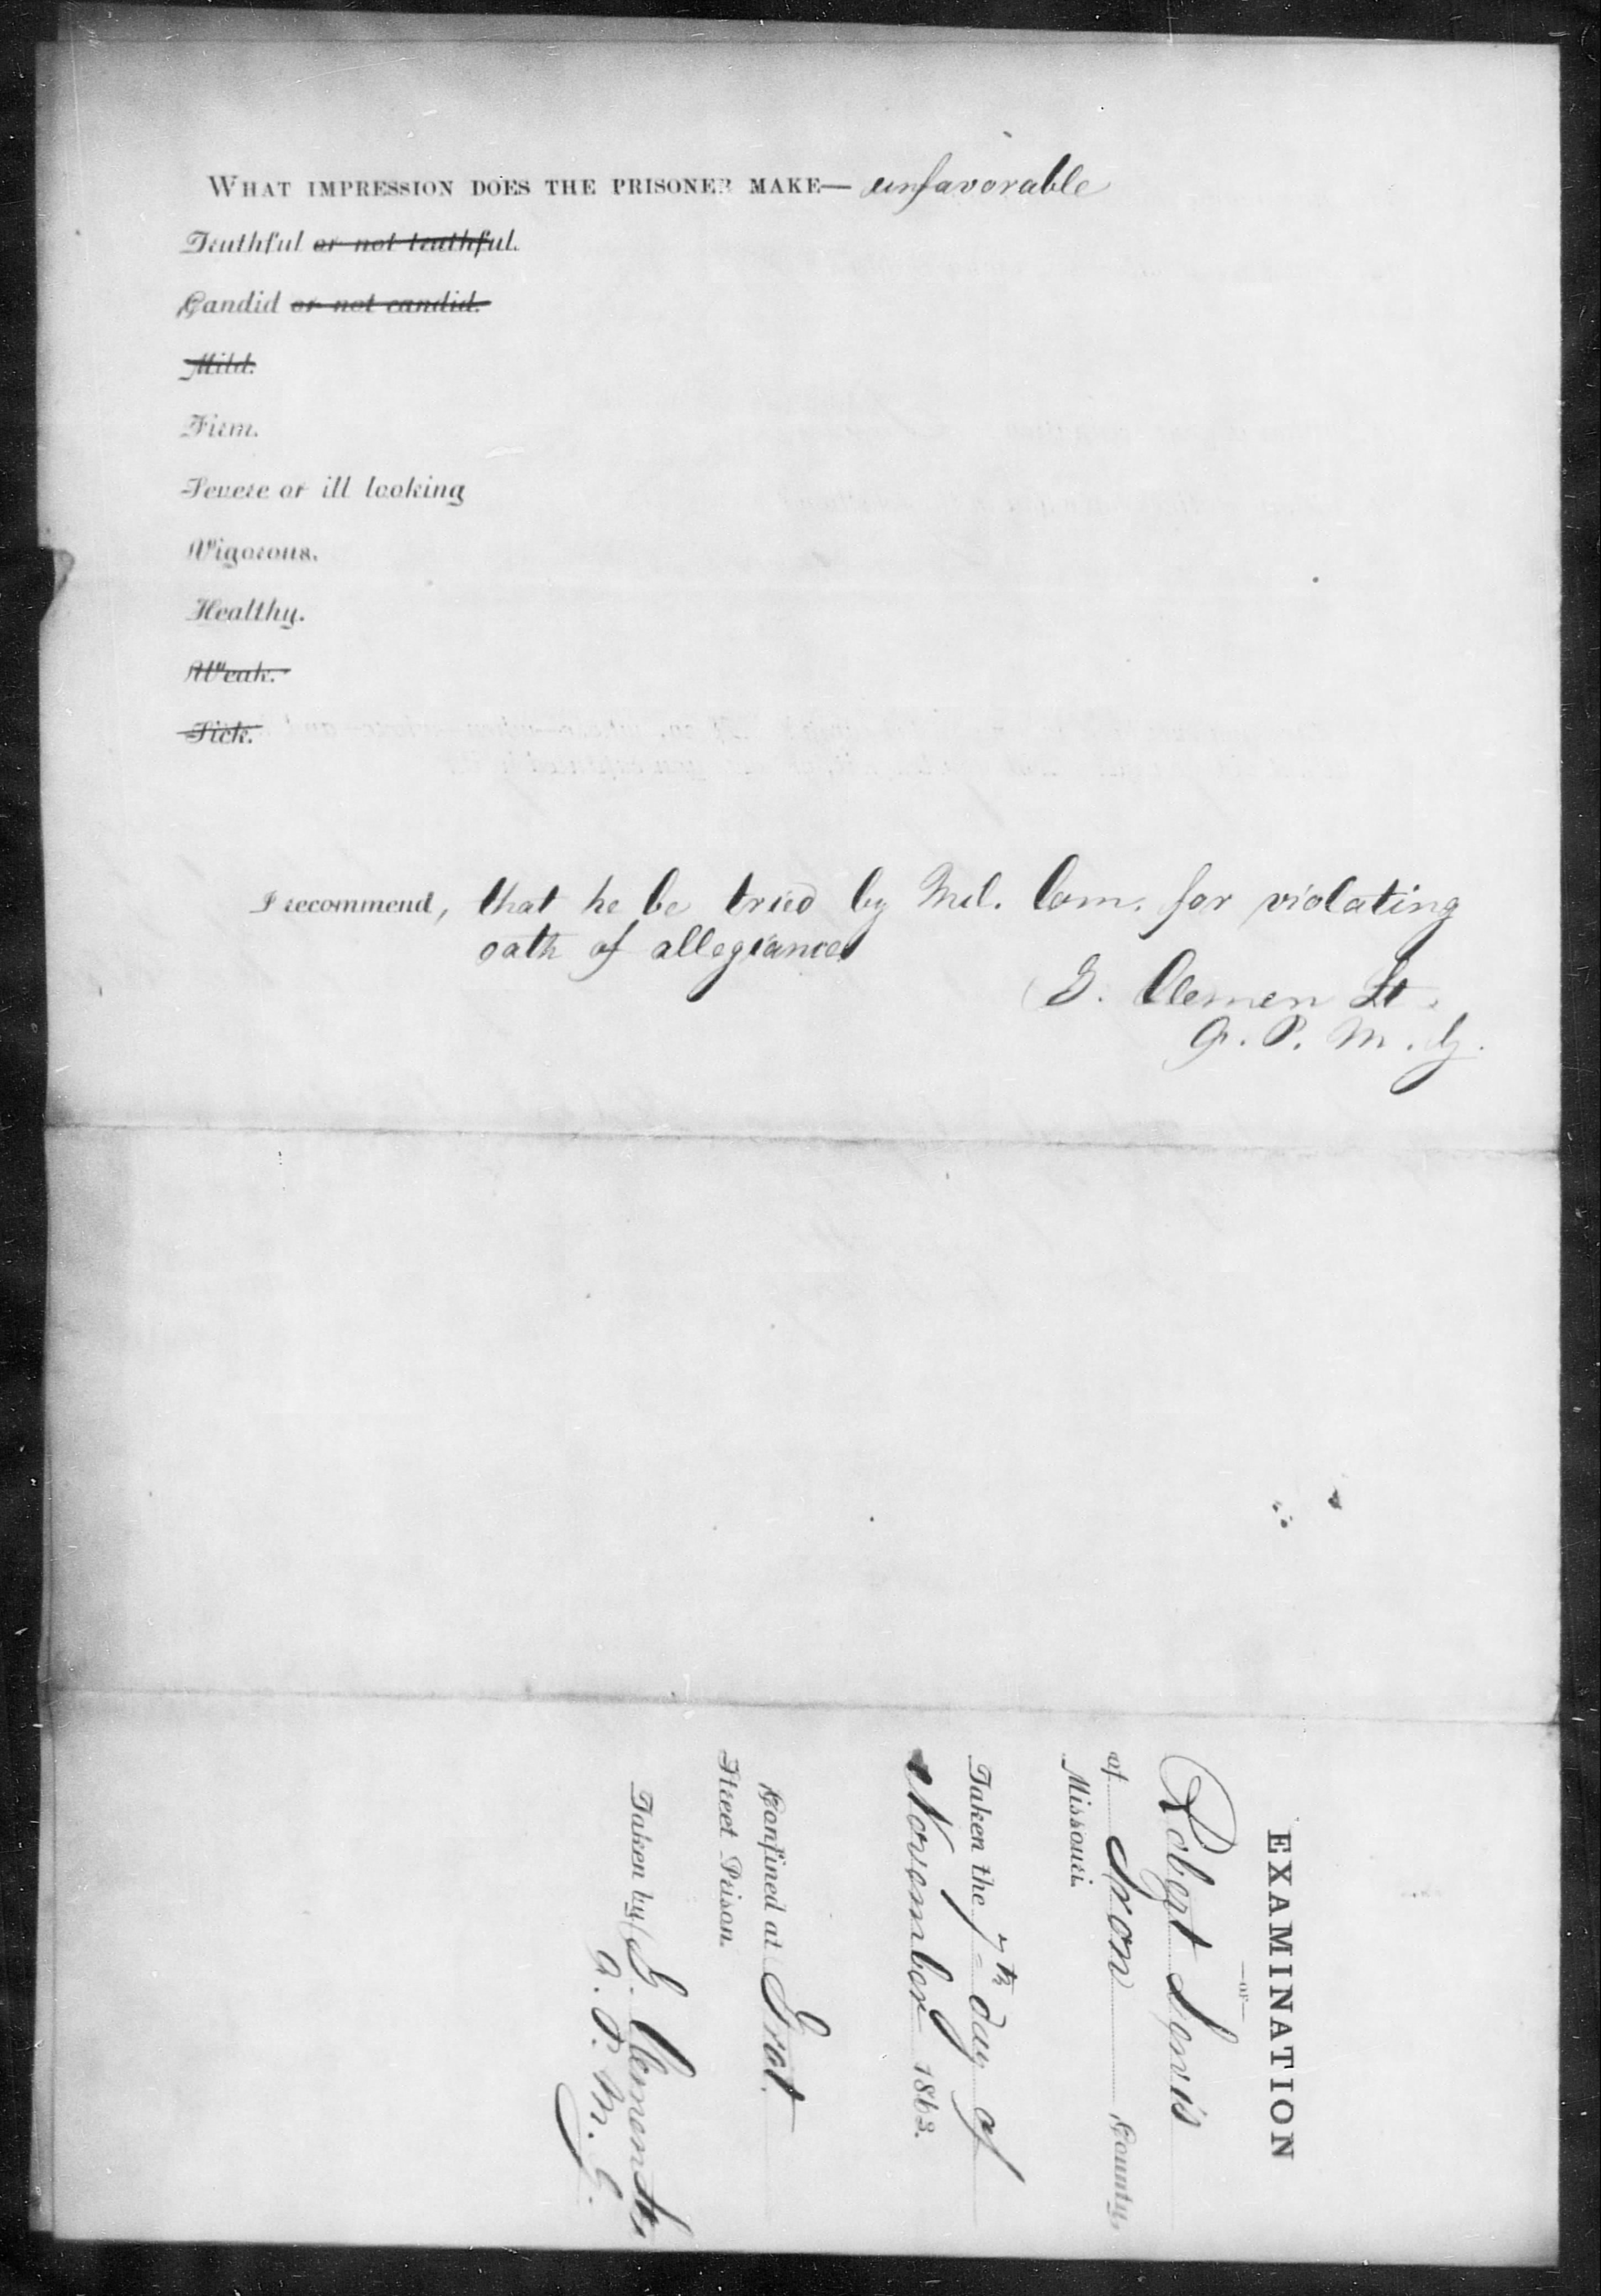 WHAT IMPRESSION DOES THE PRISONER MAKE— unfavorable
Truthful or not truthful.
Candid or not candid.
Mild.
Firm.
Severe or ill looking
Vigorous.
Healthy.
Weak.
Sick.
I recommend, that he be tried by Mil. Com. for violating
oath of allegiance
G. Clemen Lt.
A. P. M. G.
EXAMINATION
—OF—
Robert Lewis
of Iron County,
Missouri.
Taken the 7th day of
November 1863.
Confined at Grat.
Street Prison.
Taken by G. Clemen Lt.
A. P. M. G.